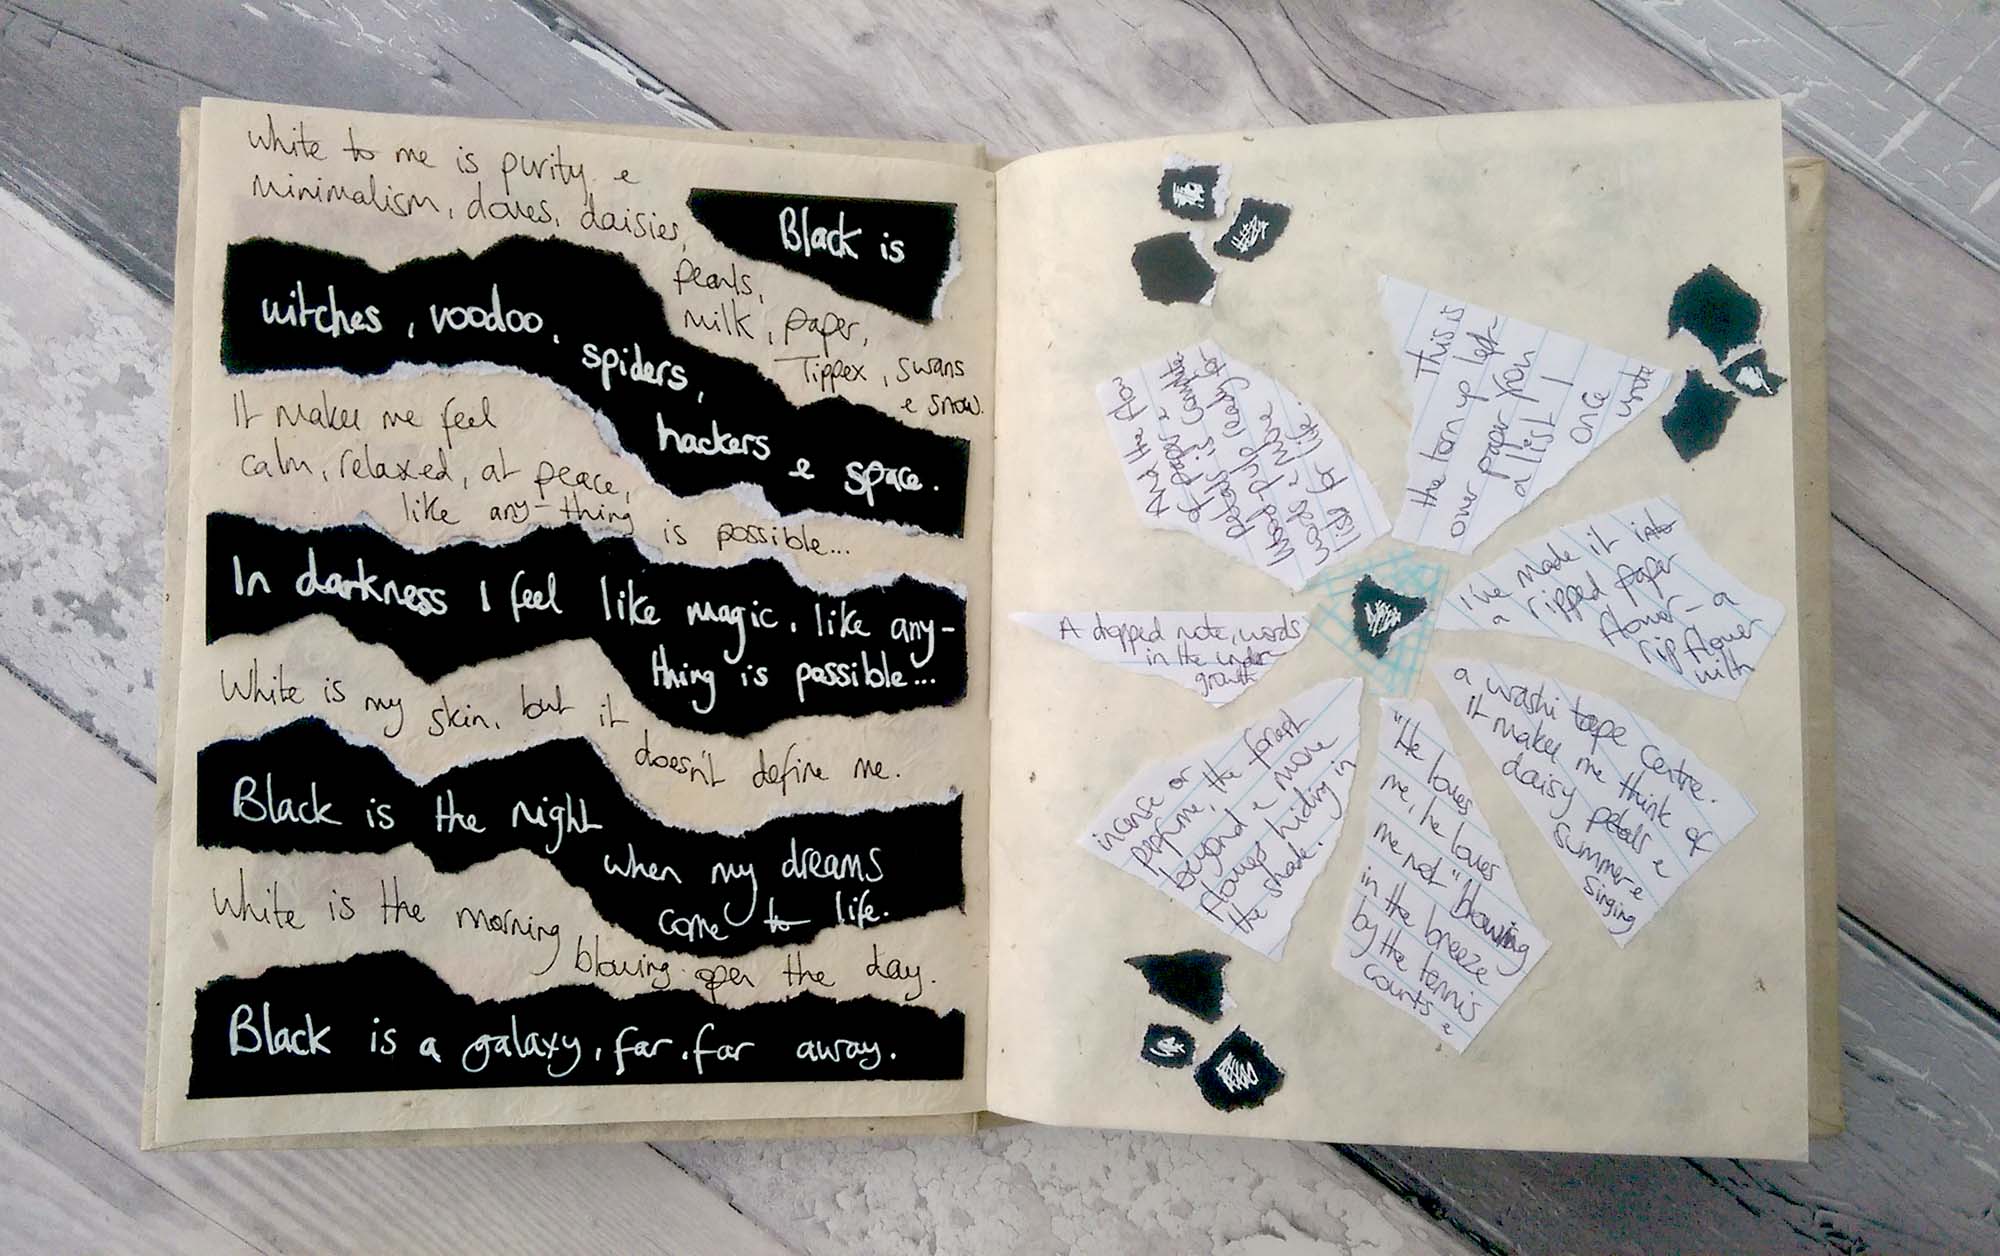 White to me is purity &
minimalism, doves, daisies,
pearls,
milk, paper,
Tippex, swans
& snow.
Black is
witches, voodoo,
spiders,
hackers & space.
It makes me feel
calm, relaxed, at peace,
like any-thing is possible...
In darkness I feel like magic, like any-
thing is possible...
White is my skin, but it
doesn't define me.
Black is the night
when my dreams
come to life.
White is the morning
blowing open the day.
Black is a galaxy, far, far away.
This is
the torn up left-
over paper from
a list I
once
wrote
I've made it into
a ripped paper
flower – a
rip flower
with
a washi tape centre.
it makes me think of
daisy petals &
summer &
singing
"He loves
me, he loves
me not" blowing
in the breeze
by the tennis
courts &
incense or
perfume, the forest
beyond & more
flowers hiding in
the shade.
A dropped note, words
in the under-
growth
And the flow
of paper &
petals is complete
wood pulp ready to
more
for life